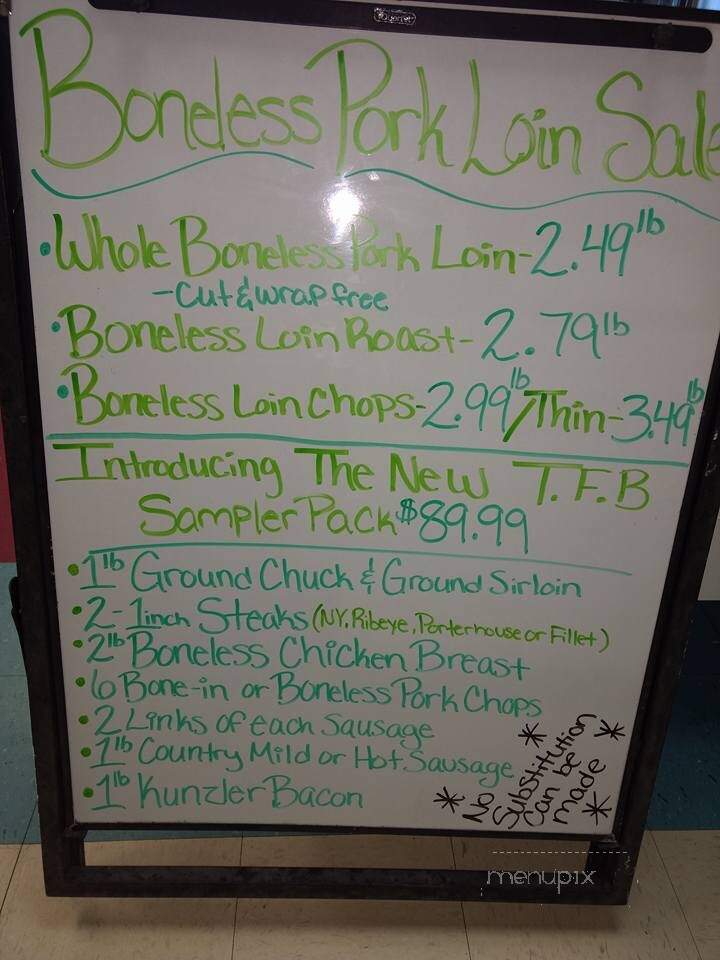 Boneless Pork Loin Sale
• Whole Boneless Pork Loin - 2.49 lb
- Cut & wrap free
• Boneless Loin Roast - 2.79 lb
• Boneless Loin Chops - 2.99 lb / Thin - 3.49 lb
Introducing The New T.F.B
Sampler Pack $89.99
• 1 lb Ground Chuck & Ground Sirloin
• 2 - 1 inch Steaks (NY, Ribeye, Porterhouse or Fillet)
• 2 lb Boneless Chicken Breast
• 6 Bone-in or Boneless Pork Chops
• 2 Links of each Sausage
• 1 lb Country Mild or Hot Sausage
• 1 lb Kunzler Bacon
* No * Substitution * can be made *
menupix